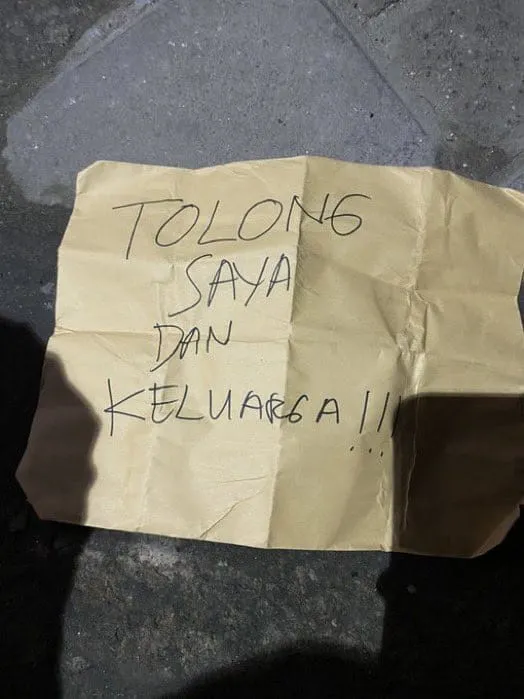 TOLONG
SAYA
DAN
KELUARGA!!!